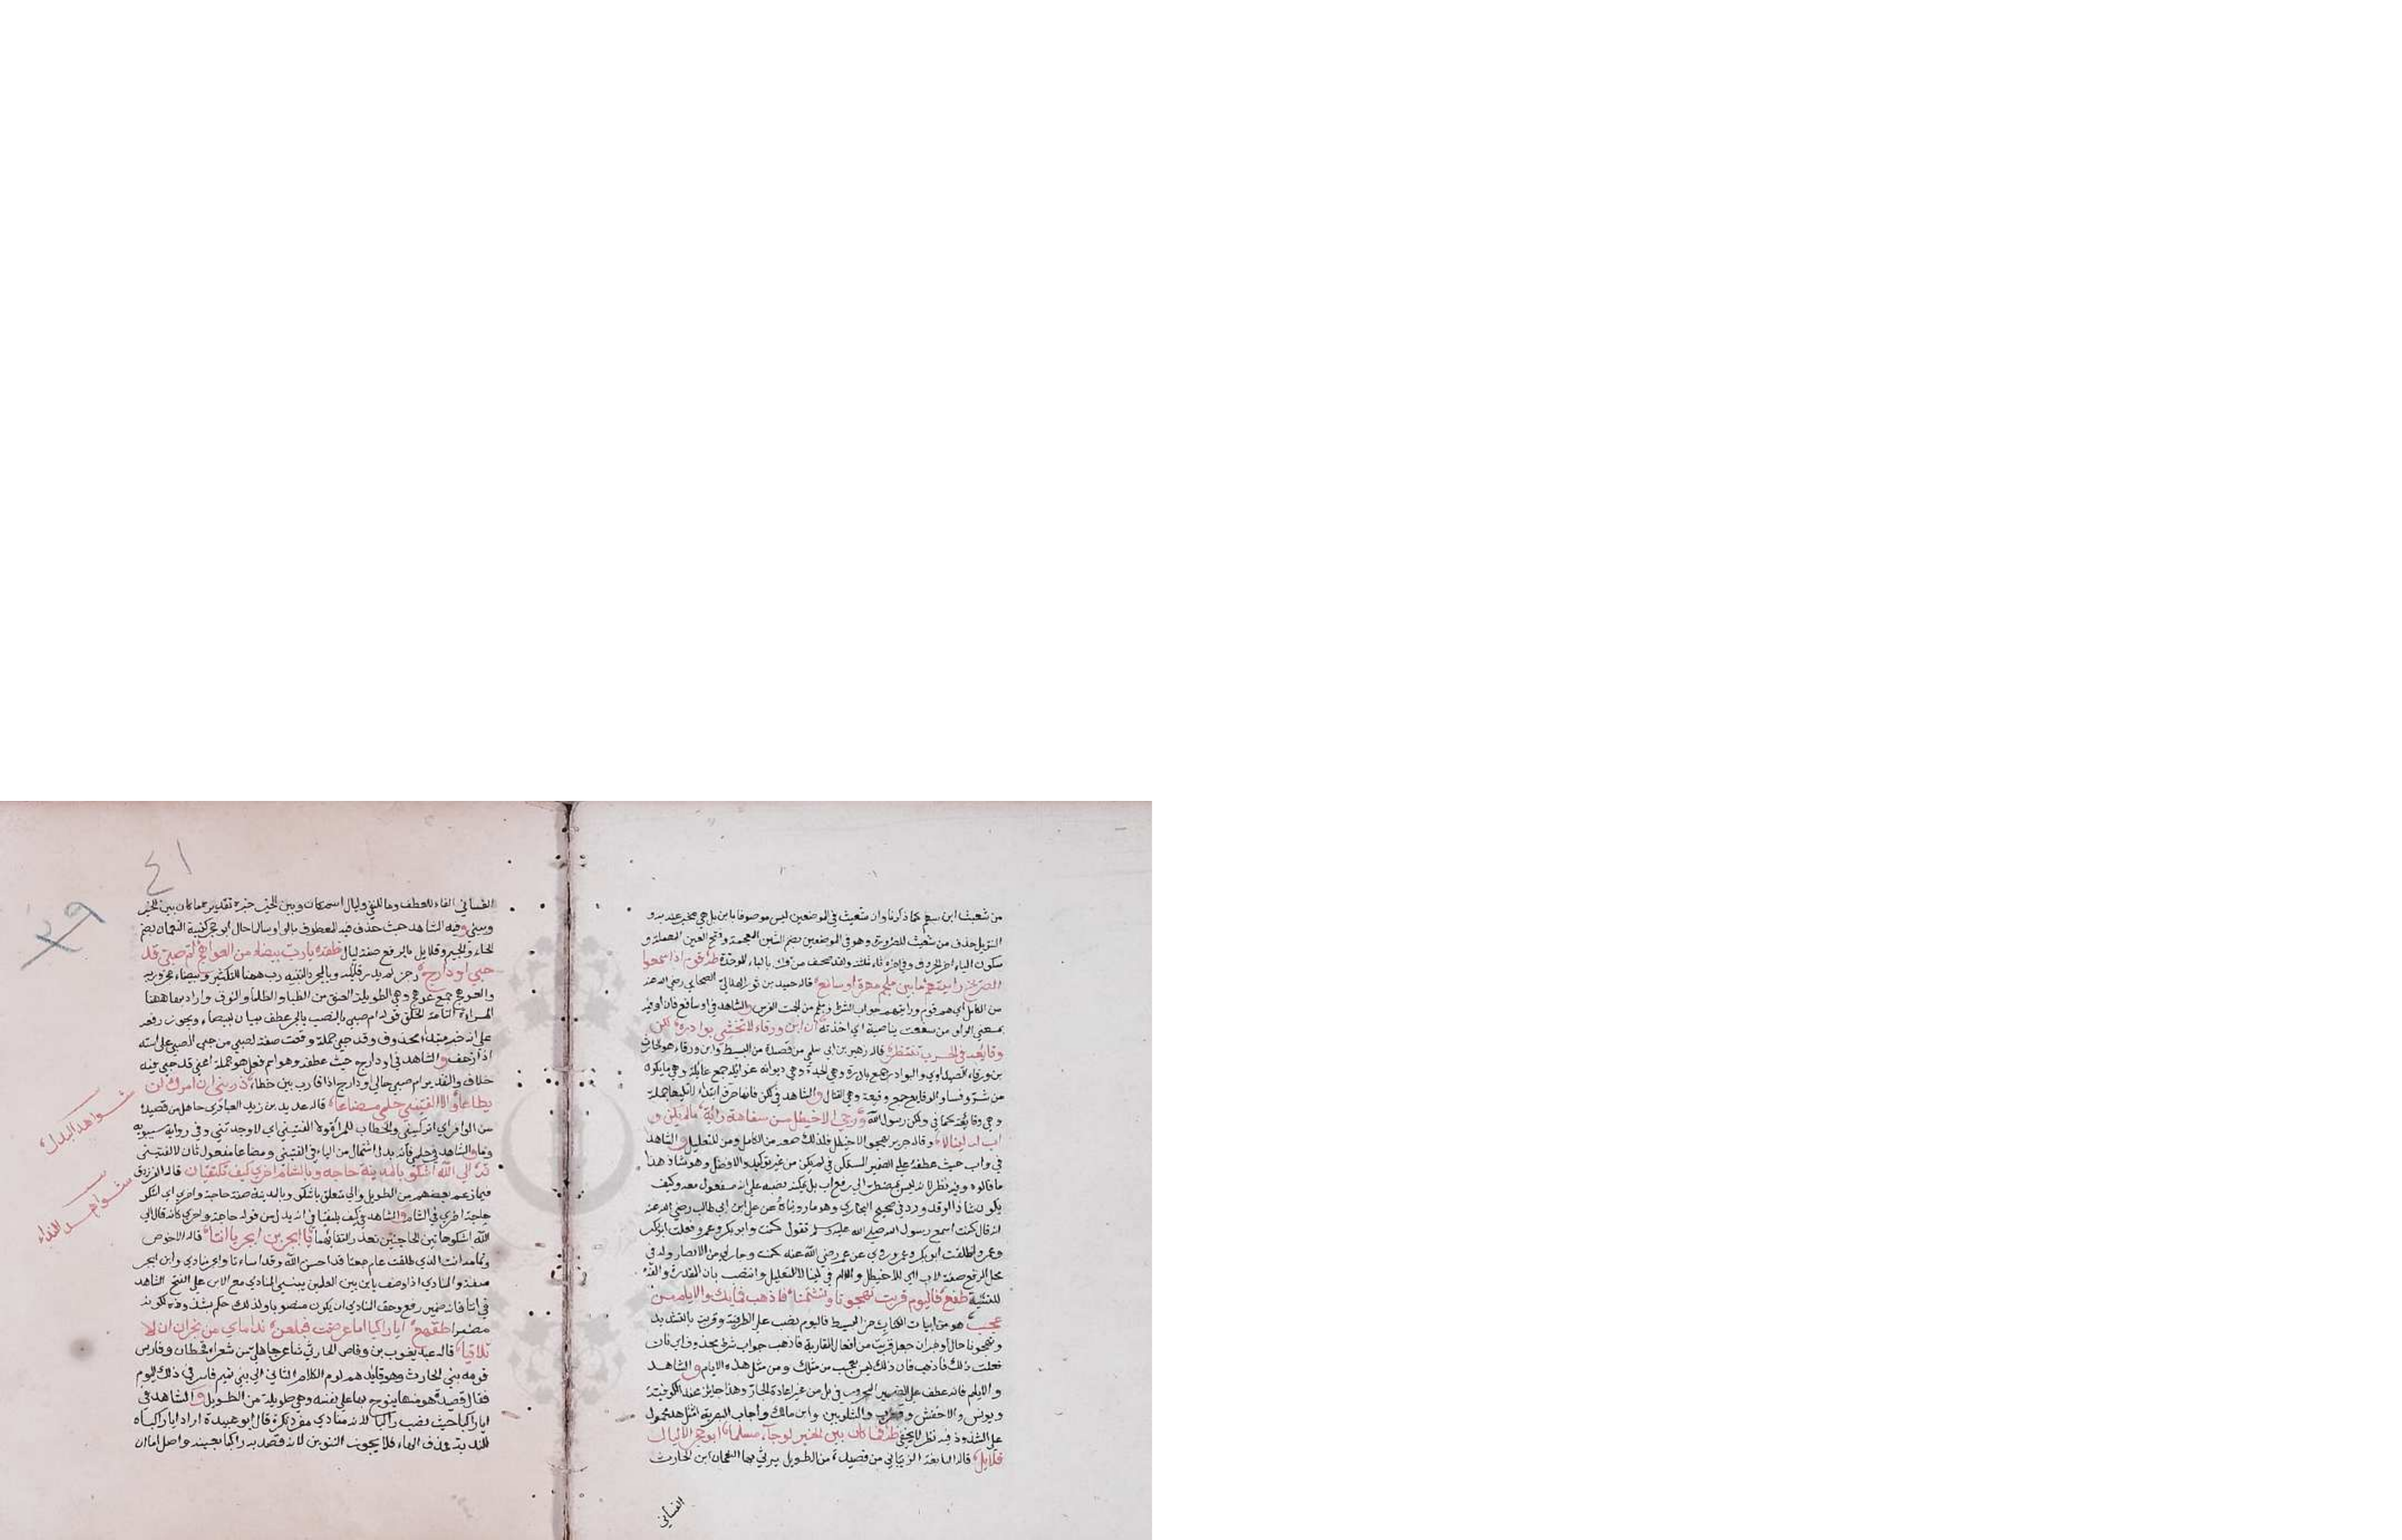 من شعيث ابن سهم كما ذكرنا وان شعيث في الموضعين ليس موصوفا بابن بل هي مخبر عنه به و
التنوين حذف من شعيث للضرورة وهو في الموضعين بضم الشين المعجمة وفتح العين المهملة و
سكون الياء اخر الحروف وفي اخره ثاء مثلثة وقد تصحف من قراه بالباء الموحدة قوم اذا سمعوا
الصريخ رايتهم ما بين ملجم مهره او سافع قاله حميد بن ثور الهلالي الصحابي رضي الله عنه
من الكامل اي هم قوم ورايتهم جواب الشرط وملجم من الجمت الفرس والشاهد في او سافع فان او فيه
بمعنى الواو من سفعت بناصية اي اخذته ان ابن ورقاء لا تخشى بوادره لكن
وقايعه في الحرب تنتظر قاله زهير بن ابي سلمى من قصيدة من البسيط وابن ورقاء هو الحارث
بن ورقاء الصيداوي والبوادر جمع بادرة وهي الحدة وفي ديوانه غوائله جمع غائلة وهي ما يكون
من شر وفساد والوقايع جمع وقيعة وهي القتال والشاهد في لكن فانها حرف ابتداء لا تليها جملة
وهي وقايعه كما في ولكن رسول الله ورجى الاخيطل من سفاهة رايه ما لم يكن و
اب له لينالا وقاله جرير يهجو الاخيطل فلذلك صغره من الكامل ومن للتعليل والشاهد
في واب حيث عطفه على الضمير المستكن في لم يكن من غير توكيد ولا فصل وهو شاذ هذا
ما قالوه وفيه نظر لانه ليس بمضطر الى رفع اب بل يمكنه نصبه على انه مفعول معه وكيف
يكون شاذا وقد ورد في صحيح البخاري وهو ما رويناه عن علي ابن ابي طالب رضي الله عنه
انه قال كنت اسمع رسول الله صلى الله عليه وسلم يقول كنت وابو بكر وعمر وفعلت وابو بكر
وعمر وانطلقت وابو بكر وعمر وروي عن عمر رضي الله عنه كنت وجار لي من الانصار وله في
محل الرفع صفة لاب اي للاخيطل واللام في لينالا للتعليل وانتصب بان المقدرة والفه
للتثنية فاليوم قربت تهجونا وتشتمنا فاذهب فما بك والايام من
عجب هو من ابيات الكتاب من البسيط فاليوم نصب على الظرفية وقربت بالتشديد
وتهجونا حال او خبر ان جعل قربت من افعال المقاربة فاذهب جواب شرط محذوف اي فان
فعلت ذلك فاذهب فان ذلك ليس بعجب من مثلك ومن مثل هذه الايام والشاهد
والايام فانه عطف على الضمير المجرور في بك من غير اعادة الجار وهذا جايز عند الكوفية
ويونس والاخفش وقطرب والشلوبين وابن مالك واجاب البصرية امثل هذه محمول
على الشذوذ فيه نظر لا يخفى فما كان بين الخير لو جاء سالما ابو حجر الا ليال
قلايل قاله النابغة الذبياني من قصيدة من الطويل يرثي بها النعمان ابن الحارث
الغساني
٤١
٣٩
الغساني الفاء للعطف وما للنفي وليال اسم كان وبين الخير خبره تقديره ما كان بين الخير
وبيني وفيه الشاهد حيث حذف فيه المعطوف بالواو سالما حال ابو حجر كنية النعمان بضم
الحاء والجيم وقلايل بالرفع صفة ليال يا رب بيضاء من العواهج ام صبي قد
حبى او دارج رجز لم يدر قائله ويا لمجرد التنبيه رب ههنا للتكثير وبيضاء مجرور به
والعوهج جمع عوهج وهي الطويلة العنق من الظباء والظلمان والنوق واراد بها ههنا
المراة التامة الخلق قوله ام صبي بالنصب بالجر عطف بيان لبيضاء ويجوز رفعه
على انه خبر مبتدا محذوف وقد حبى جملة وقعت صفة لصبي من حبى الصبي على استه
اذا زحف والشاهد في او دارج حيث عطفه وهو اسم فعل هو جملة اعني قد حبى وفيه
خلاف والتقدير ام صبي حابي ودارج اذا قارب بين خطاه ذريني ان امرك لن
يطاعا وما الفيتني حلمي مضاعا قاله عدي بن زيد العبادي جاهلي من قصيدة
من الوافر اي اتركيني والخطاب للمراة ولا الفيتيني اي لا وجدتني وفي رواية سيبويه
وما والشاهد في حلمي فانه بدل اشتمال من الياء في الفيتني ومضاعا مفعول ثان لالفيتني
الى الله اشكو بالمدينة حاجة وبالشام اخرى كيف تلتقيان قاله الفرزدق
فيما زعم بعضهم من الطويل والى متعلق باشكو وبالمدينة صفة حاجة واخرى اي اشكو
حاجة اخرى في الشام والشاهد في كيف يلتقيان فانه بدل من قوله حاجة واخرى كانه قال الى
الله اشكو هاتين الحاجتين تعذر التقائهما يا ابجر بن ابجر يا انتا قاله الاحوص
وتمامه انت الذي طلقت عام جعتا قد احسن الله وقد اساءتا وابجر منادى وابن ابجر
صفته والمنادى اذا وصف بابن بين العلمين يبنى المنادى مع الابن على الفتح الشاهد
في انتا فانه ضمير رفع وحق المنادى ان يكون منصوبا ولذلك حكم بشذوذه لكونه
مضمرا ايا راكبا اما عرضت فبلغن نداماي من نجران ان لا
تلاقيا قاله عبد يغوث بن وقاص الحارثي شاعر جاهلي من شعراء قحطان وفارس
قومه بني الحارث وهو قايدهم يوم الكلاب الثاني الى بني تميم فاسر في ذلك اليوم
فقال قصيدة هو منها ينوح بها على نفسه وهي طويلة من الطويل والشاهد في
ايا راكبا حيث نصب راكبا لانه منادى مفرد نكرة قال ابو عبيدة اراد ايا راكباه
للندبة فحذف الهاء فلا يجوز التنوين لانه قصد به راكبا بعينه واصل اما ان
شواهد البدل
شواهد النداء